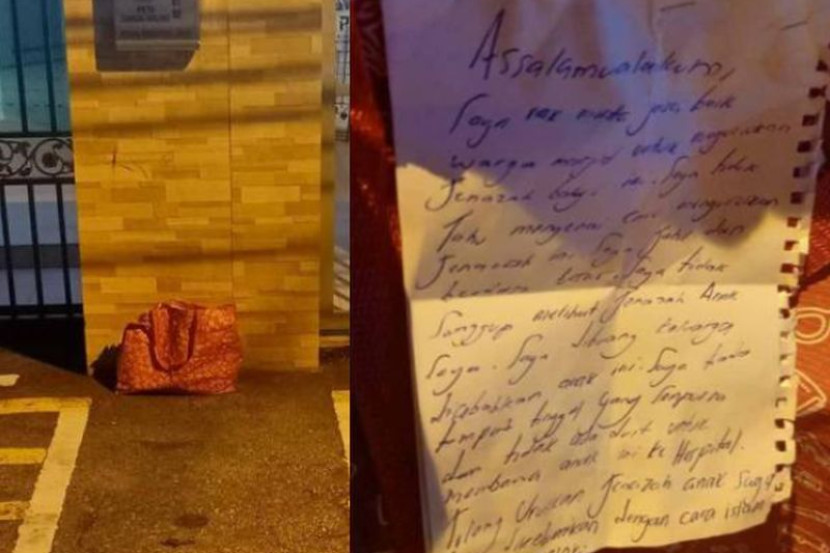 Assalamualaikum,
Saya nak minta jasa baik
warga masjid untuk uruskan
Jenazah bayi ini. Saya tidak
Tahu mengenai cara menguruskan
Jenazah ini. Saya Jahil dan
berdosa besar. Saya tidak
Sanggup melihat Jenazah Anak
Saya. Saya dibuang keluarga
disebabkan anak ini. Saya tiada
tempat tinggal yang sempurna
dan tidak ada duit untuk
membawa anak ini ke Hospital.
Tolong Uruskan Jenazah anak Saya
dengan cara islam